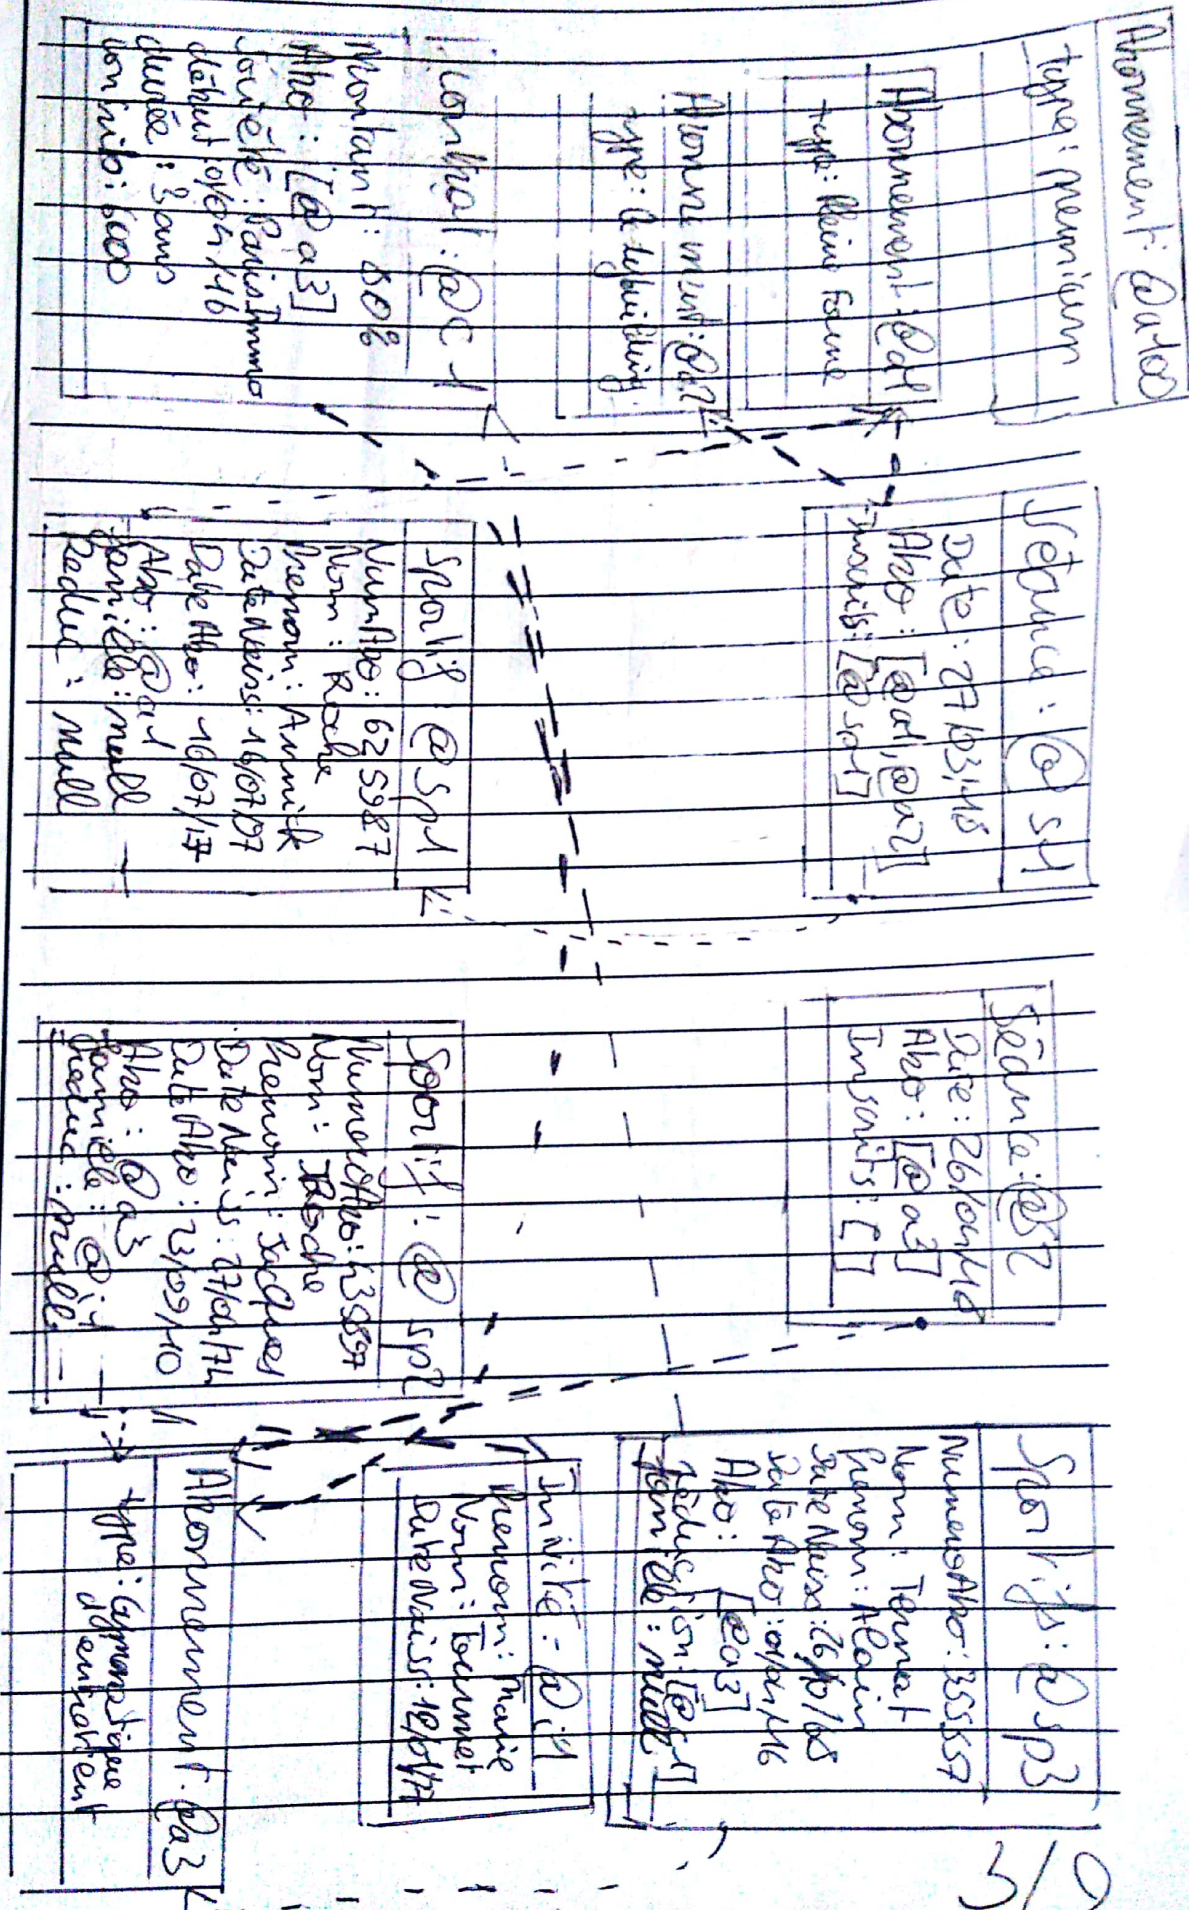 Abonnement: @a100
type: premium
Abonnement: @a1
type: Pleine Forme
Abonnement: @a2
type: Bodybuilding
Contrat: @c1
Montant: 80%
Abo: [@a3]
Société: ParisImmo
début: 01/04/16
durée: 3ans
6000
Séance: @s1
Date: 27/03/18
Abo: [@a1, @a2]
inscrits: [@sp1]
Sportif: @sp1
NumAbo: 625987
Nom: Roche
Prenom: Annick
DateNaiss: 16/07/07
DateAbo: 16/07/17
Abo: @a1
famille: null
Reduc: null
Séance: @s2
Date: 26/04/18
Abo: [@a3]
Inscrits: []
Sportif: @sp2
NumeroAbo: 23897
Nom: Roche
Prenom: Jacques
DateNaiss: 27/04/74
DateAbo: 23/09/10
Abo: @a3
famille: @i1
reduc: null
Sportifs: @sp3
NumeroAbo: 35557
Nom: Termat
Prenom: Alain
DateNaiss: 26/10/68
DateAbo: 01/04/16
Abo: [@a3]
réduction: [@c1]
famille: null
Invité: @i1
Prenom: Marie
Nom:
DateNaiss:
Abonnement: @a3
type: Gymnastique
d'entretien
3/9